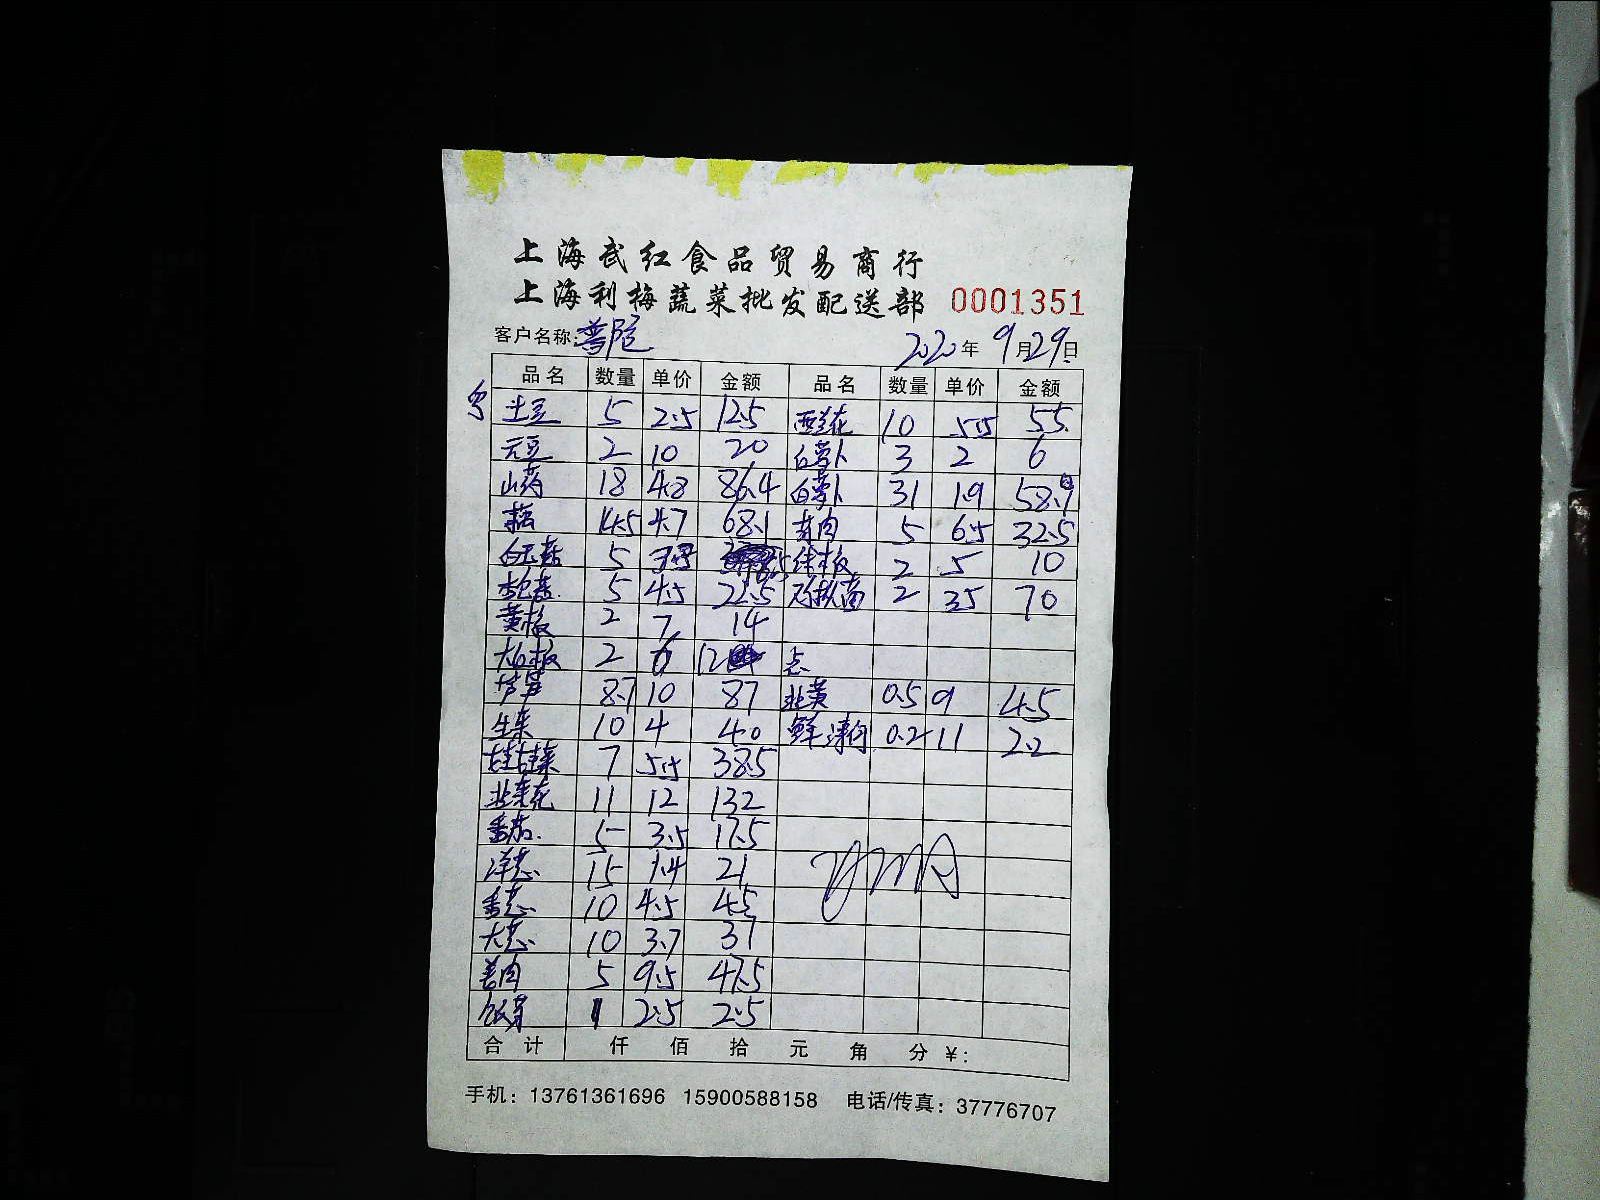 上海武红食品贸易商行
上海利梅蔬菜批发配送部 0001351
客户名称: 普陀 2020年 9月29日
品名 数量 单价 金额 品名 数量 单价 金额
土豆 5 2.5 12.5 西兰花 10 5.5 55
元豆 2 10 20 白萝卜 3 2 6
山药 18 4.8 86.4 白萝卜 31 1.9 58.9
藕 14.5 4.7 68.1 茸肉 5 6.5 32.5
白玉菇 5 2 5 10
杏鲍菇 5 4.5 22.5 2 35 70
黄椒 2 7 14
2 6 12 点
芦笋 8.7 10 87 韭黄 0.5 9 4.5
生菜 10 4 40 鲜薄荷 0.2 11 2.2
娃娃菜 7 5.5 38.5
韭菜花 11 12 132
番茄 5 3.5 17.5
洋葱 15 1.4 21
香葱 10 4.5 45
大葱 10 3.7 37
姜肉 5 9.5 47.5
银芽 1 2.5 2.5
合计 仟 佰 拾 元 角 分 ¥:
手机: 13761361696 15900588158 电话/传真: 37776707